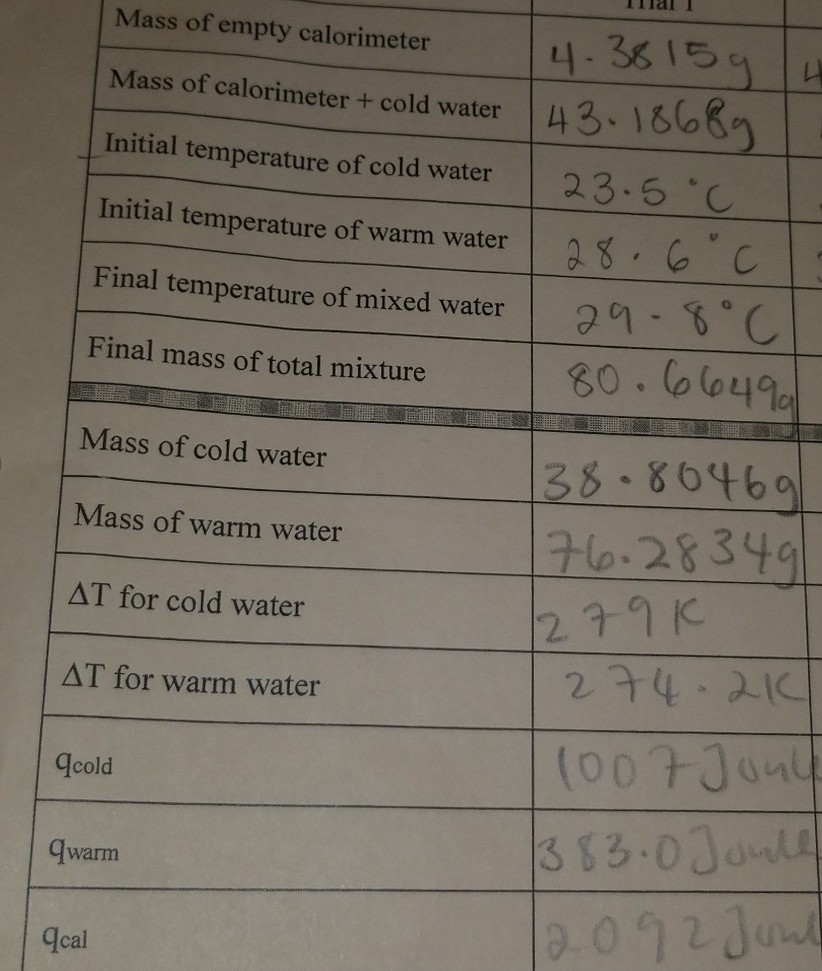 Trial 1
Mass of empty calorimeter 4.3815g 4
Mass of calorimeter + cold water 43.1868g
Initial temperature of cold water 23.5 °C
Initial temperature of warm water 28.6 °C
Final temperature of mixed water 29-8 °C
Final mass of total mixture 80.6649g
Mass of cold water 38.8046g
Mass of warm water 76.2834g
ΔT for cold water 279K
ΔT for warm water 274.2K
qcold 1007 Joul
qwarm 383.0 Joule
qcal 2092 Joul